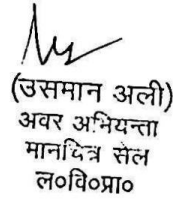 (उसमान अली)
अवर अभियन्ता
मानचित्र सेल
ल०वि०प्रा०